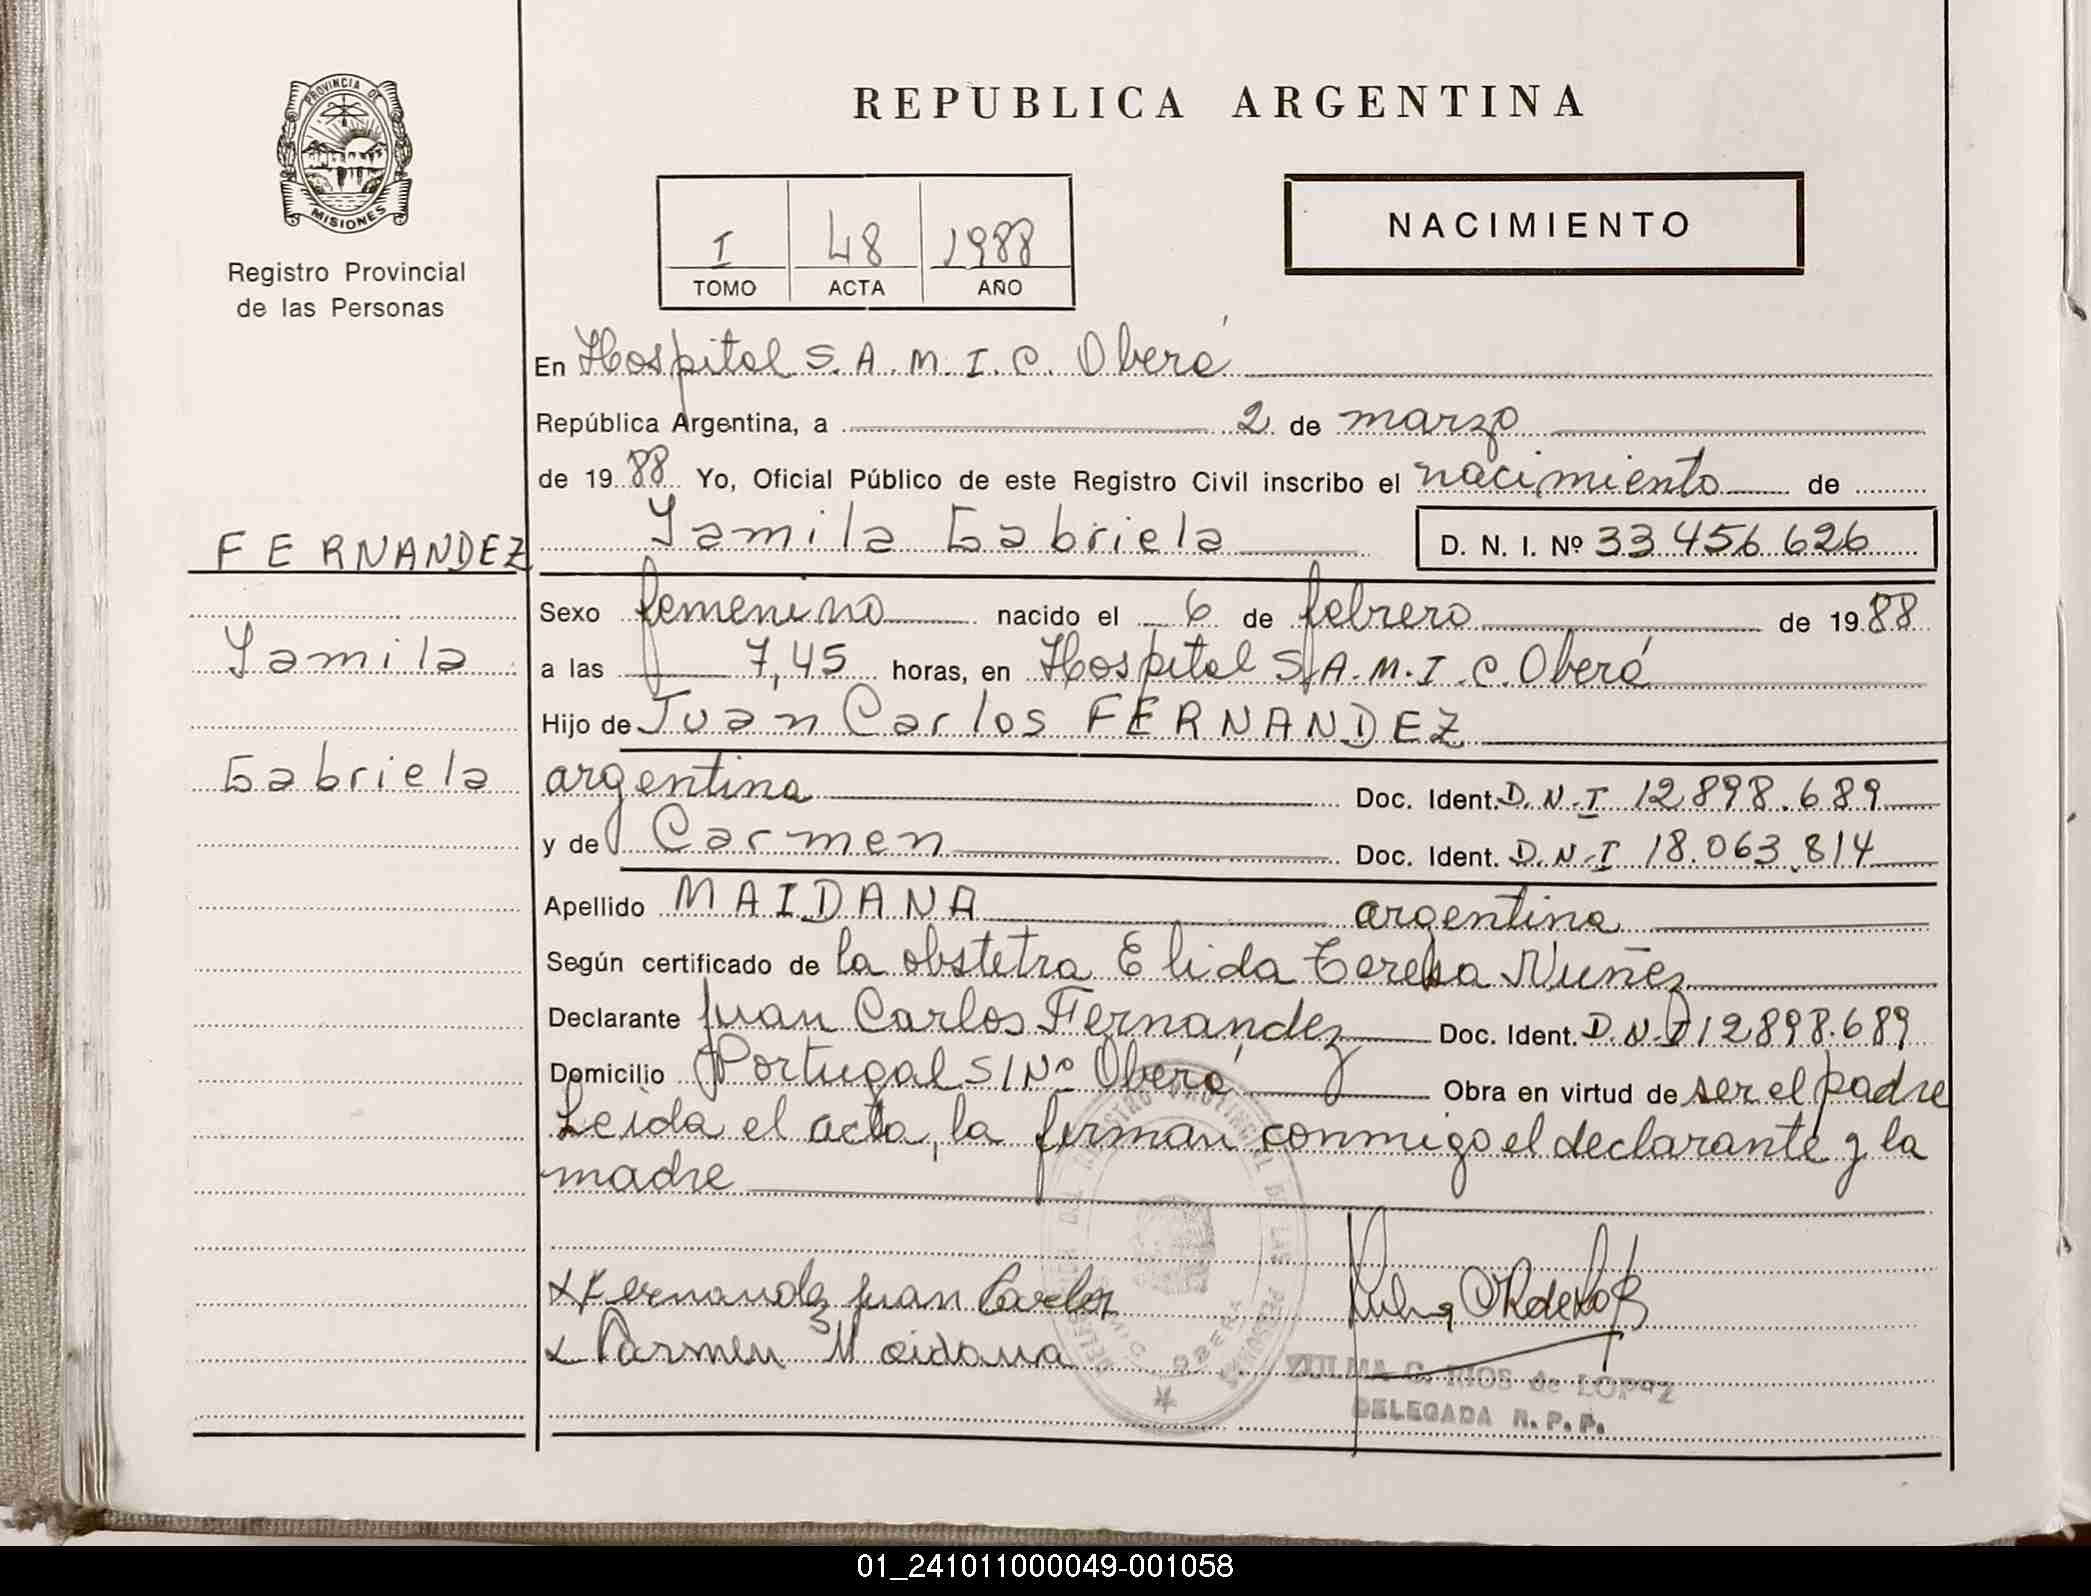 PROVINCIA DE
MISIONES
Registro Provincial
de las Personas
REPUBLICA ARGENTINA
I 48 1988
TOMO ACTA AÑO
NACIMIENTO
En Hospital S.A.M.I.C. Oberá
República Argentina, a 2 de marzo
de 1988 Yo, Oficial Público de este Registro Civil inscribo el nacimiento de
FERNANDEZ Yamila Gabriela D. N. I. Nº 33 456 626
Sexo femenino nacido el 6 de febrero de 1988
Yamila a las 7,45 horas, en Hospital S.A.M.I.C. Oberá
Hijo de Juan Carlos FERNANDEZ
Gabriela argentina Doc. Ident. D.N.I 12 898.689
y de Carmen Doc. Ident. D.N.I 18.063.814
Apellido MAIDANA argentina
Según certificado de la obstetra Elida Teresa Nuñez
Declarante Juan Carlos Fernandez Doc. Ident. D.N.I 12898.689
Domicilio Portugal S/Nº Oberá Obra en virtud de ser el padre
Leida el acta, la firman conmigo el declarante y la
madre
Fernandez Juan Carlos
Carmen Maidana
REGISTRO PROVINCIAL DE LAS PERSONAS
OBERA
ZULMA C. RIOS de LOPEZ
DELEGADA R. P. P.
01_241011000049-001058